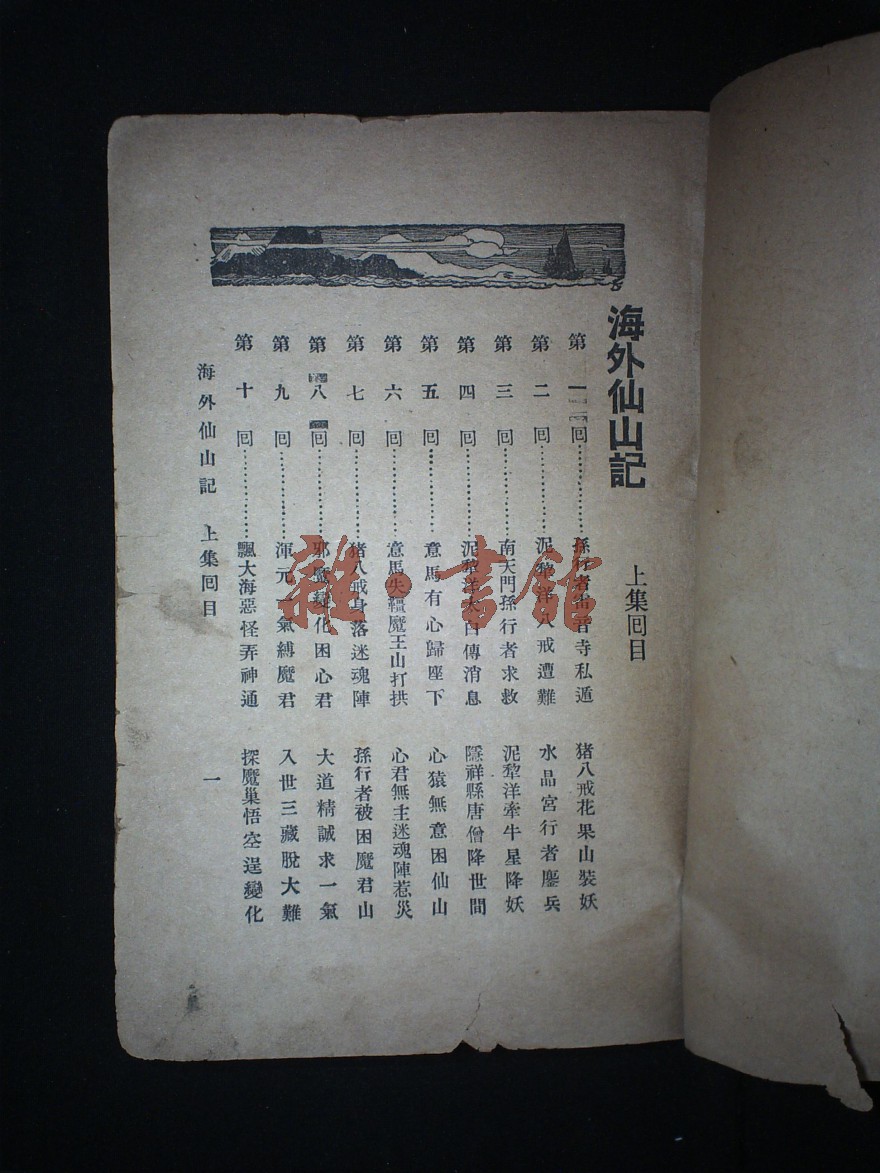 海外仙山記
上集囘目
第一囘…………孫行者雷音寺私遁 猪八戒花果山裝妖
第二囘…………泥犂洋八戒遭難 水晶宮行者鏖兵
第三囘…………南天門孫行者求救 泥犂洋牽牛星降妖
第四囘…………泥犂洋太白傳消息 隱祥縣唐僧降世間
第五囘…………意馬有心歸座下 心猿無意困仙山
第六囘…………意馬失韁魔王山打拱 心君無主迷魂陣惹災
第七囘…………猪八戒身落迷魂陣 孫行者被困魔君山
第八囘…………邪魔變化困心君 大道精誠求一氣
第九囘…………渾元一氣縛魔君 入世三藏脫大難
第十囘…………飄大海惡怪弄神通 探魔巢悟空逞變化
海外仙山記 上集囘目 一
雜·書館